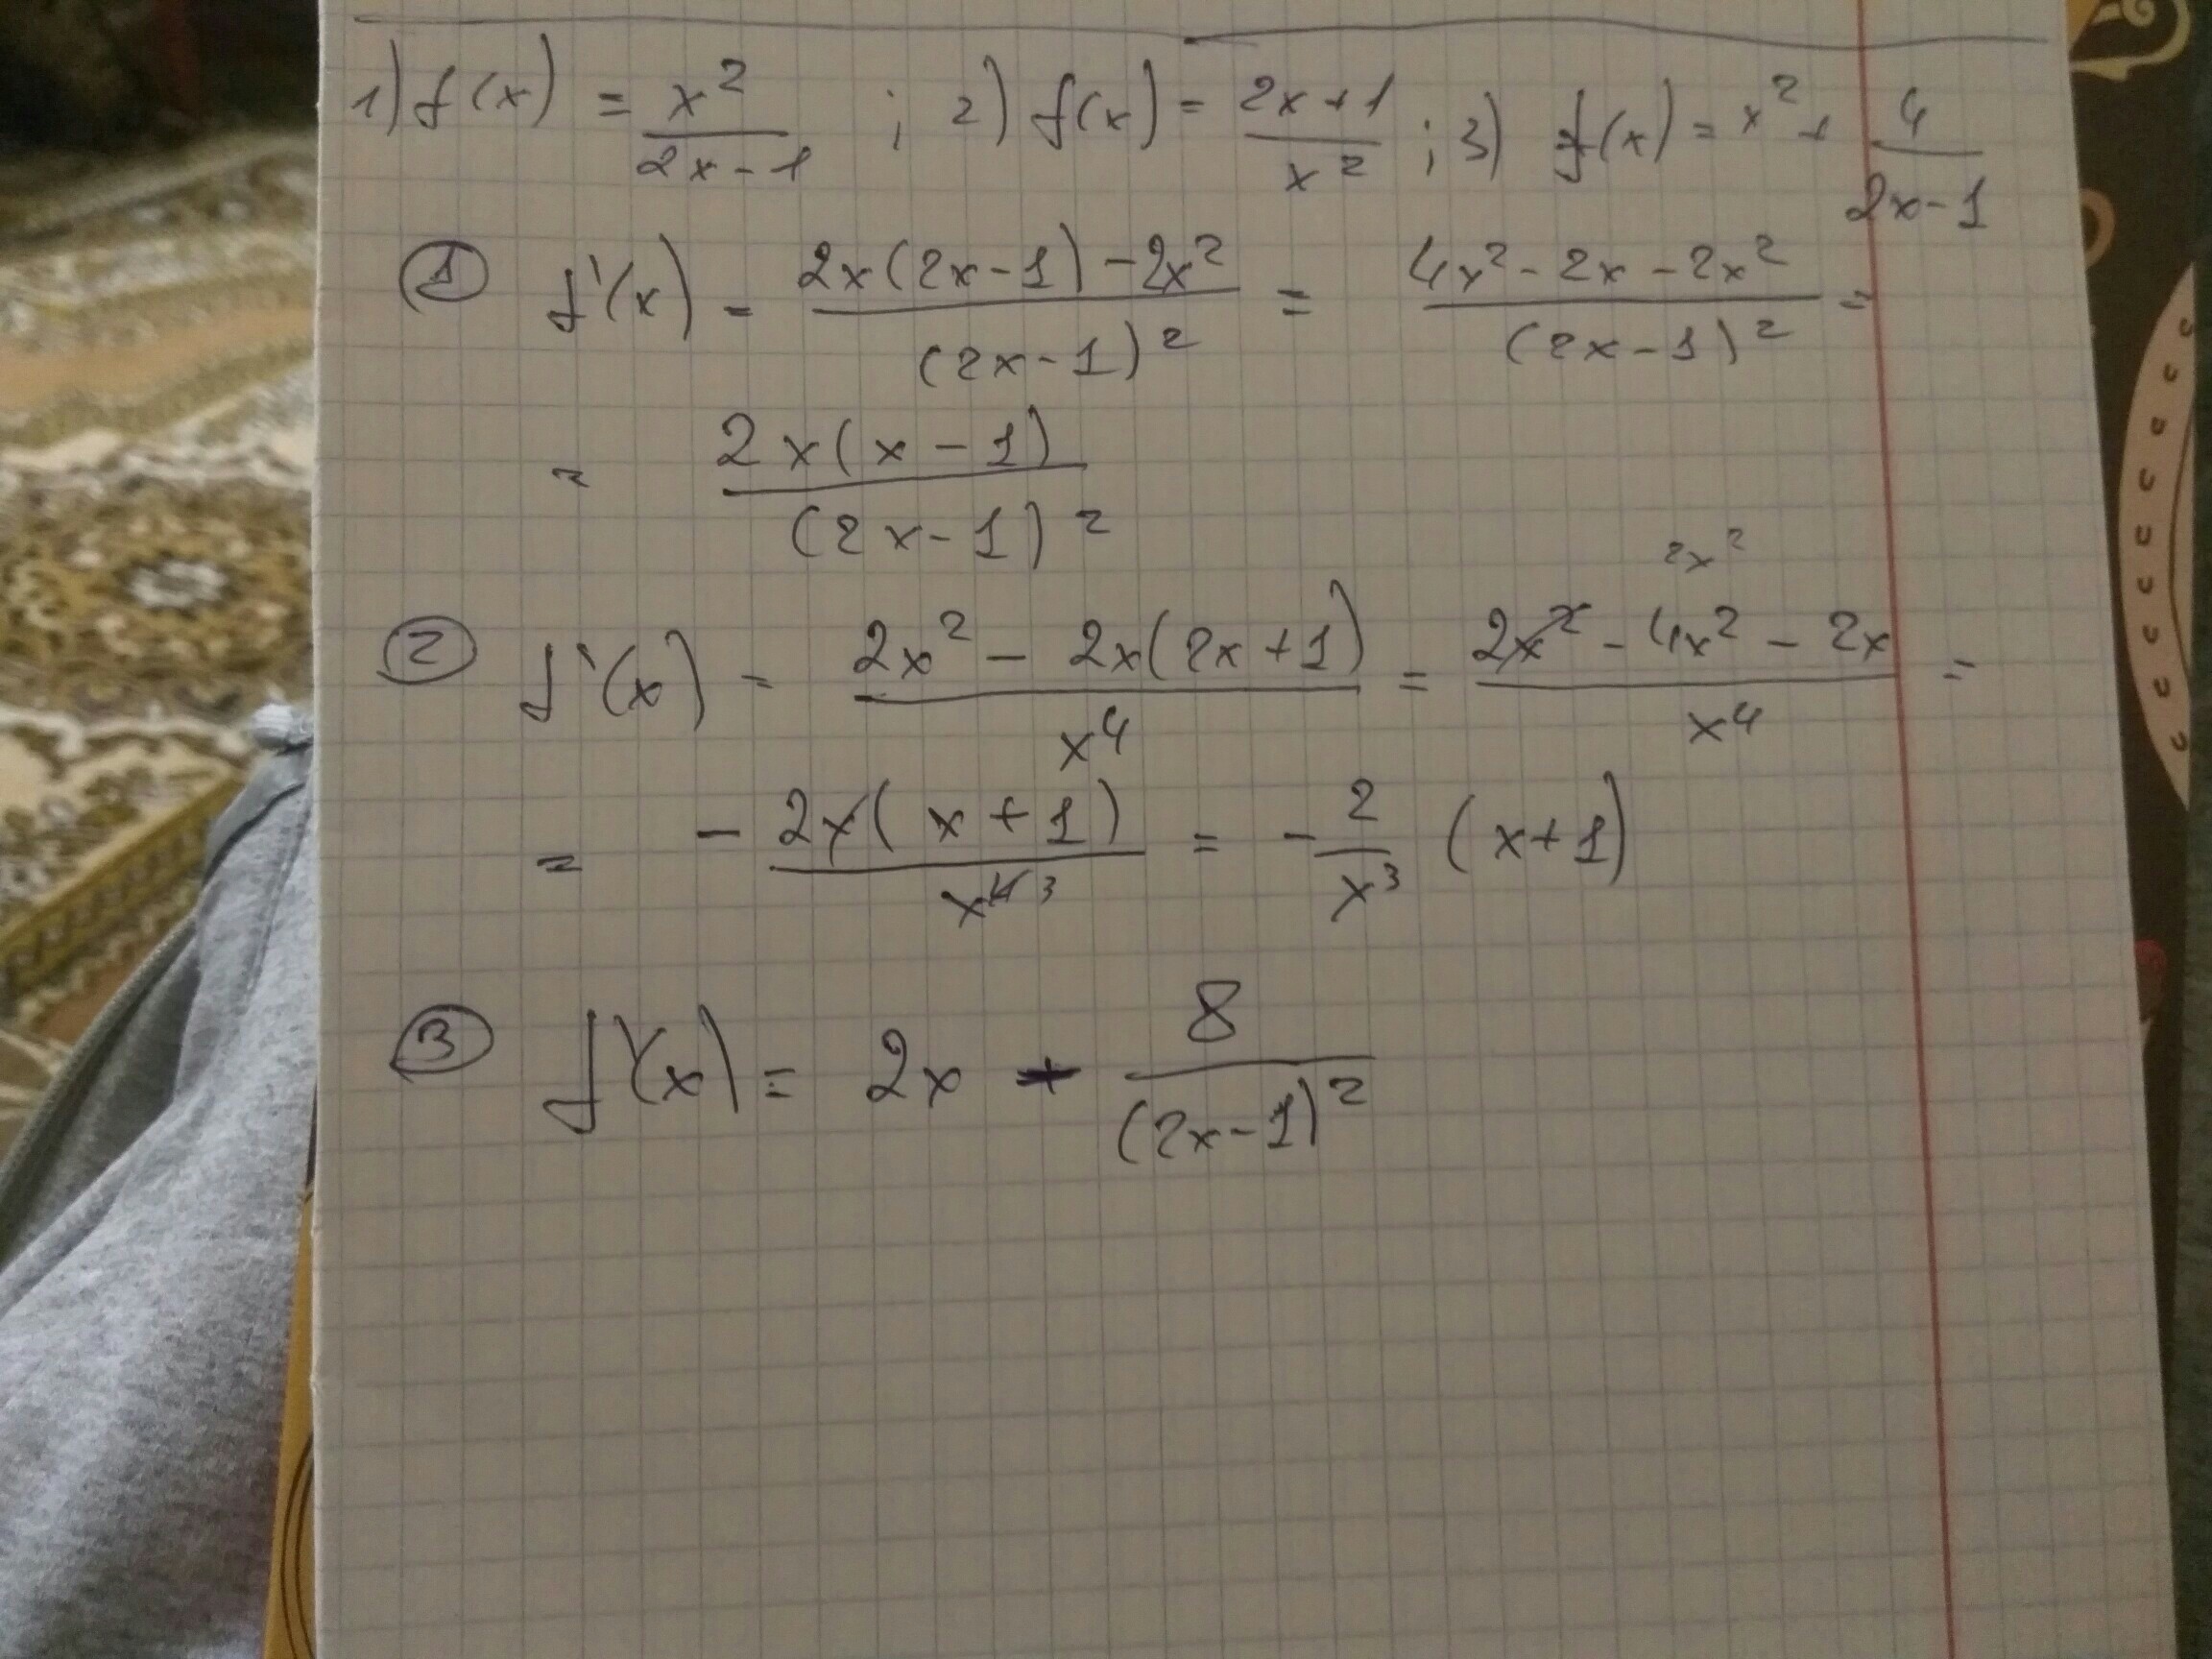 1) f(x) = x²/(2x-1) ; 2) f(x) = (2x+1)/x² ; 3) f(x) = x² + 4/(2x-1)
① f'(x) = (2x(2x-1) - 2x²)/(2x-1)² = (4x² - 2x - 2x²)/(2x-1)² =
= 2x(x-1)/(2x-1)²
2x²
② f'(x) = (2x² - 2x(2x+1))/x⁴ = (2x² - 4x² - 2x)/x⁴ =
= - 2x(x+1)/x⁴ ³ = - 2/x³ (x+1)
③ f'(x) = 2x + 8/(2x-1)²